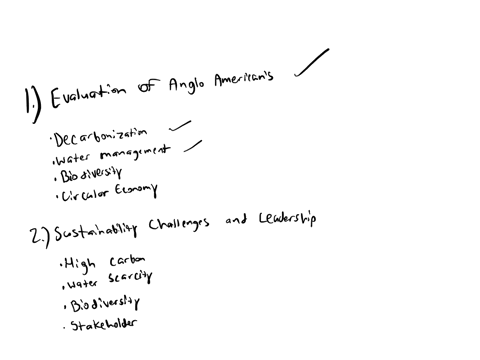 1.) Evaluation of Anglo American's
• Decarbonization
• Water management
• Biodiversity
• Circular Economy
2.) Sustainability Challenges and Leadership
• High carbon
• Water scarcity
• Biodiversity
• Stakeholder